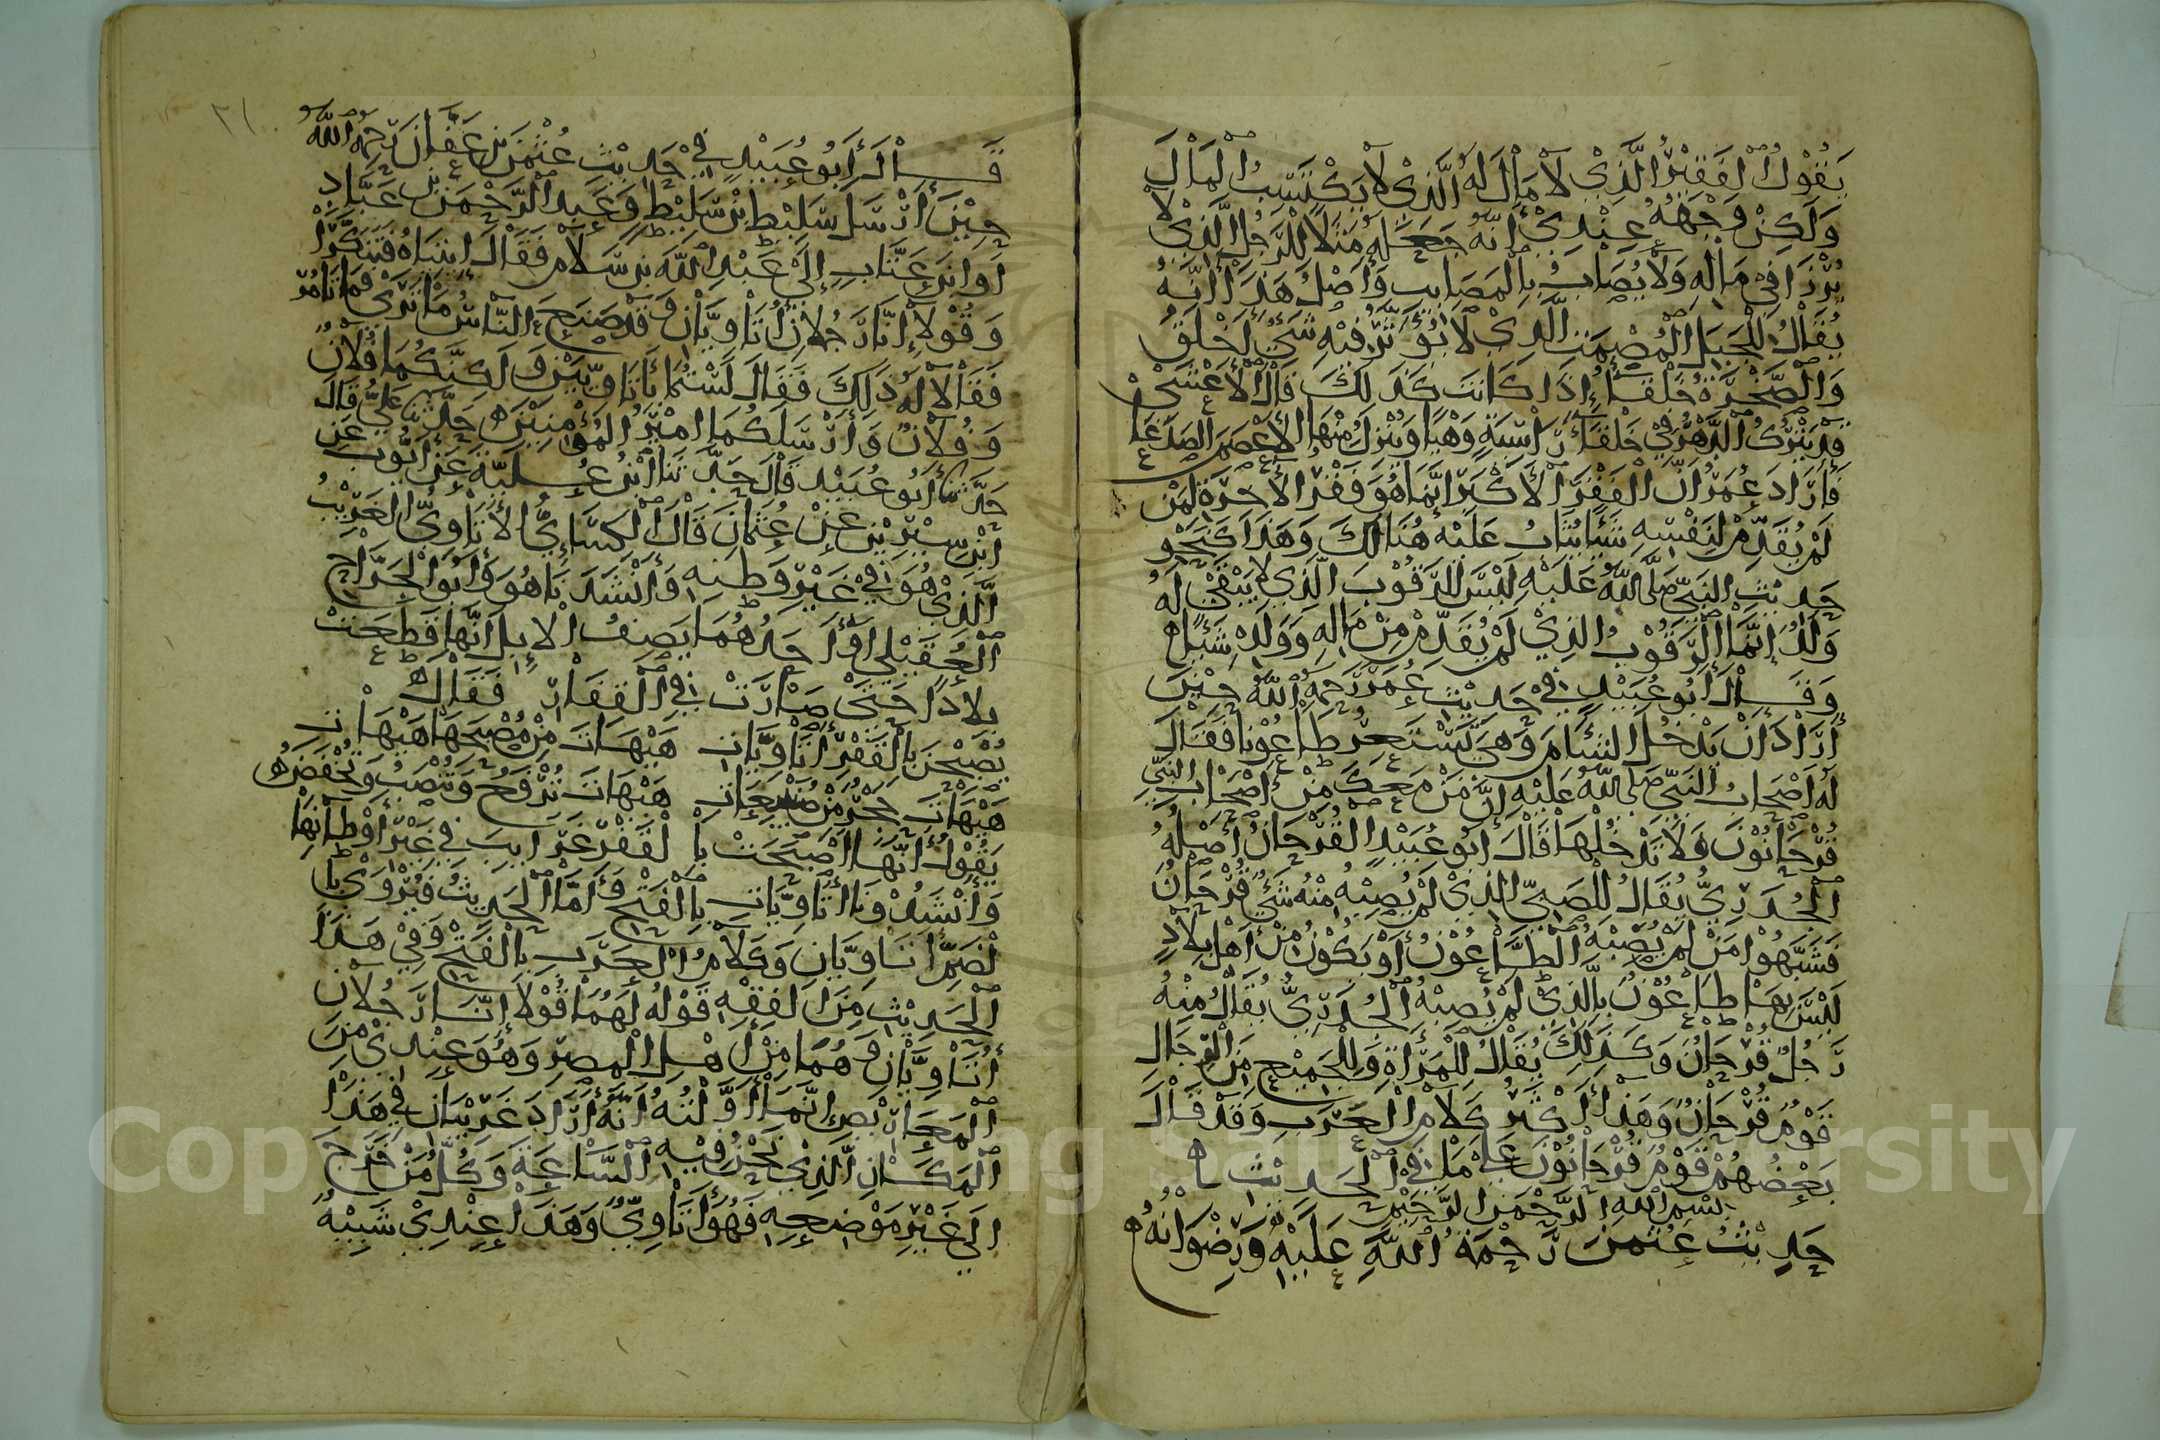 يَقُوْلُ الْفَقِيْرُ الَّذِيْ لَا مَالَ لَهُ الَّذِيْ لَا يَكْتَسِبُ الْمَالَ
وَلَكِنْ وَجْهُهُ عِنْدِيْ أَنَّهُ جَعَلَهُ مَثَلًا لِلرَّجُلِ الَّذِيْ لَا
يُرْزَأُ فِيْ مَالِهِ وَلَا يُصَابُ بِالْمَصَائِبِ وَأَصْلُ هَذَا أَنَّهُ
يُقَالُ لِلْجَبَلِ الْمُصْمَتِ الَّذِيْ لَا يُؤَثِّرُ فِيْهِ شَيْءٌ أَخْلَقُ
وَالصَّخْرَةُ خَلْقَاءُ إِذَا كَانَتْ كَذَلِكَ قَالَ الْأَعْشَى
قَدْ يَتْرُكُ الدَّهْرُ فِيْ خَلْقَاءَ رَاسِيَةٍ وَهْيًا وَيُنْزِلُ مِنْهَا الْأَعْصَمَ الصَّدَعَا
فَأَرَادَ عُمَرُ أَنَّ الْفَقْرَ الْأَكْبَرَ إِنَّمَا هُوَ فَقْرُ الْآخِرَةِ لِمَنْ
لَمْ يُقَدِّمْ لِنَفْسِهِ شَيْئًا يُثَابُ عَلَيْهِ هُنَالِكَ وَهَذَا كَنَحْوِ
حَدِيْثِ النَّبِيِّ صَلَّى اللَّهُ عَلَيْهِ لَيْسَ الرَّقُوْبَ الَّذِيْ لَا يَبْقَى لَهُ
وَلَدٌ إِنَّمَا الرَّقُوْبُ الَّذِيْ لَمْ يُقَدِّمْ مِنْ مَالِهِ وَوَلَدِهِ شَيْئًا ه
وَقَالَ أَبُو عُبَيْدٍ فِيْ حَدِيْثِ عُمَرَ رَحِمَهُ اللَّهُ حِيْنَ
أَرَادَ أَنْ يَدْخُلَ الشَّامَ وَهِيَ تَسْتَعِرُ طَاعُوْنًا فَقَالَ
لَهُ أَصْحَابُ النَّبِيِّ صَلَّى اللَّهُ عَلَيْهِ إِنَّ مَنْ مَعَكَ مِنْ أَصْحَابِ النَّبِيِّ
قُرْحَانُوْنَ فَلَا تَدْخُلْهَا قَالَ أَبُو عُبَيْدٍ الْقُرْحَانُ أَصْلُهُ
الْجُدَرِيُّ يُقَالُ لِلصَّبِيِّ الَّذِيْ لَمْ يُصِبْهُ مِنْهُ شَيْءٌ قُرْحَانٌ
فَشَبَّهُوْا مَنْ لَمْ يُصِبْهُ الطَّاعُوْنُ أَوْ يَكُوْنُ مِنْ أَهْلِ بِلَادٍ
لَيْسَ بِهَا طَاعُوْنٌ بِالَّذِيْ لَمْ يُصِبْهُ الْجُدَرِيُّ يُقَالُ مِنْهُ
رَجُلٌ قُرْحَانٌ وَكَذَلِكَ يُقَالُ لِلْمَرْأَةِ وَلِلْجَمِيْعِ مِنَ الرِّجَالِ
قَوْمٌ قُرْحَانٌ وَهَذَا أَكْثَرُ كَلَامِ الْعَرَبِ وَقَدْ قَالَ
بَعْضُهُمْ قَوْمٌ قُرْحَانُوْنَ عَلَى مَا فِي الْحَدِيْثِ ه
بسم الله الرَّحْمَن الرَّحِيْم
حَدِيْثُ عُثْمَنَ رَحْمَةُ اللَّهِ عَلَيْهِ وَرِضْوَانُهُ ه
٣١
قَالَ أَبُو عُبَيْدٍ فِيْ حَدِيْثِ عُثْمَنَ بْنِ عَفَّانَ رَحِمَهُ اللَّهُ
حِيْنَ أَرْسَلَ سَلِيْطَ بْنَ سَلِيْطٍ وَعَبْدَ الرَّحْمَنِ بْنَ عَبَّادٍ
أَوِ ابْنَ عَتَّابٍ إِلَى عَبْدِ اللَّهِ بْنِ سَلَامٍ فَقَالَ ائْتِيَاهُ فَتَنَكَّرَا
وَقُوْلَا إِنَّا رَجُلَانِ أُتَاوِيَّانِ وَقَدْ صَنَعَ النَّاسُ مَا تَرَى فَمَا تَأْمُرُ
فَقَالَا لَهُ ذَلِكَ فَقَالَ لَسْتُمَا بِأُتَاوِيَّيْنِ وَلَكِنَّكُمَا فُلَانٌ
وَفُلَانٌ وَأَرْسَلَكُمَا أَمِيْرُ الْمُؤْمِنِيْنَ ه حَدَّثَنَا عَلِيٌّ قَالَ
حَدَّثَنَا أَبُو عُبَيْدٍ قَالَ حَدَّثَنَا ابْنُ عُلَيَّةَ عَنْ أَيُّوبَ عَنِ
ابْنِ سِيْرِيْنَ عَنْ عُثْمَانَ قَالَ الْكِسَائِيُّ الْأُتَاوِيُّ الْغَرِيْبُ
الَّذِيْ هُوَ فِيْ غَيْرِ وَطَنِهِ وَأَنْشَدَنَا هُوَ وَأَبُو الْجَرَّاحِ
الْعُقَيْلِيُّ أَوْ أَحَدُهُمَا يَصِفُ الْإِبِلَ أَنَّهَا قَطَعَتْ
بِلَادًا حَتَّى صَارَتْ فِي الْقِفَارِ فَقَالَ ه
يُصْبِحْنَ بِالْقَفْرِ أَتَاوِيَّاتِ هَيْهَاتَ مِنْ مُصْبَحِهَا هَيْهَاتِ
هَيْهَاتَ حَجْرٌ مِنْ صُنَيْبِعَاتِ هَيْهَاتَ تُرْفَعُ وَتُنْصَبُ وَتُخْفَضُ ه
يَقُوْلُ أَنَّهَا أَصْبَحَتْ بِالْقَفْرِ غَرَائِبَ فِيْ غَيْرِ أَوْطَانِهَا
وَأَنْشَدُوْنَا أَتَاوِيَّاتِ بِالْفَتْحِ فَأَمَّا الْحَدِيْثُ فَيُرْوَى بِا
لْضَمِّ أُتَاوِيَّانِ وَكَلَامُ الْعَرَبِ بِالْفَتْحِ وَفِيْ هَذَا
الْحَدِيْثِ مِنَ الْفِقْهِ قَوْلُهُ لَهُمَا قُوْلَا إِنَّا رَجُلَانِ
أُتَاوِيَّانِ وَهُمَا مِنْ أَهْلِ الْمِصْرِ وَهُوَ عِنْدِيْ مِنَ
الْمَعَارِيْضِ إِنَّمَا أَوَّلْتُهُ أَنَّهُ أَرَادَ غَرِيْبَانِ فِيْ هَذَا
الْمَكَانِ الَّذِيْ نَحْنُ فِيْهِ السَّاعَةَ وَكُلُّ مَنْ خَرَجَ
إِلَى غَيْرِ مَوْضِعِهِ فَهُوَ أَتَاوِيٌّ وَهَذَا عِنْدِيْ شَبِيْهٌ